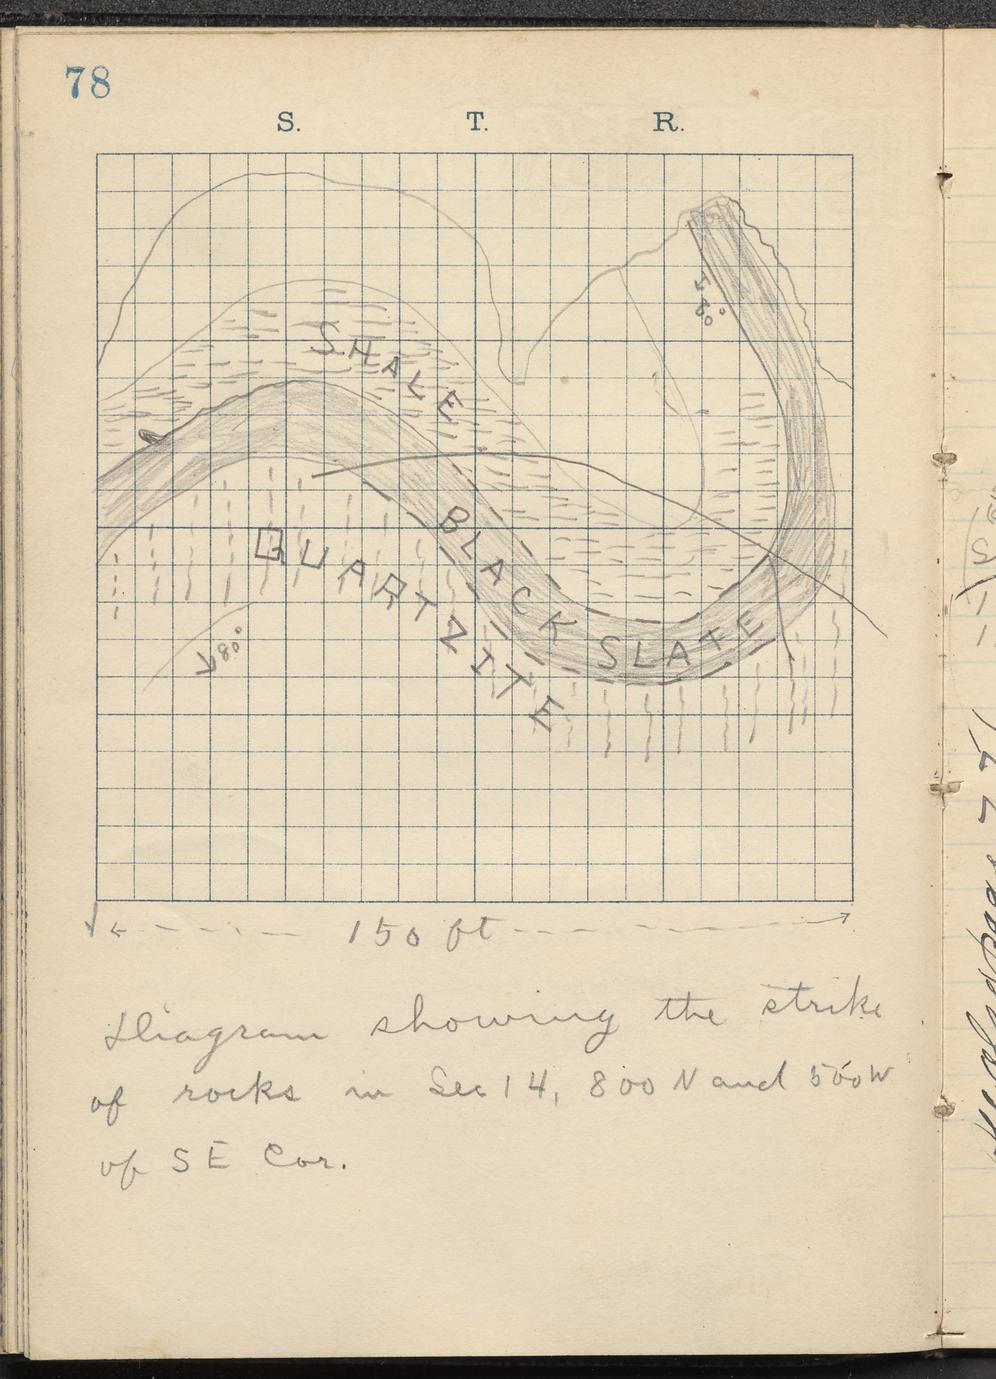 78
S. T. R.
SHALE
80°
BLACK SLATE
QUARTZITE
80°
150 ft
Diagram showing the strike
of rocks in Sec 14, 800 N and 500 W
of SE Cor.